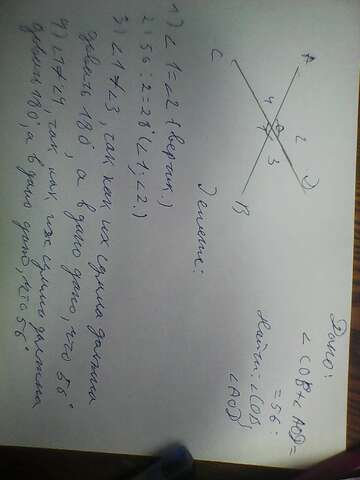 Дано:
∠COB+∠AOD=
=56°
Найти: ∠COB
∠AOD
C
A
4
2
3
D
B
Решение:
1) ∠1=∠2 (вертик.)
2) 56:2=28°(∠1;∠2.)
3) ∠1≠∠3, так как их сумма должна
давать 180°, а в дано дано, что 56°
4) ∠1≠∠4, так как их сумма должна
давать 180°, а в дано дано, что 56°